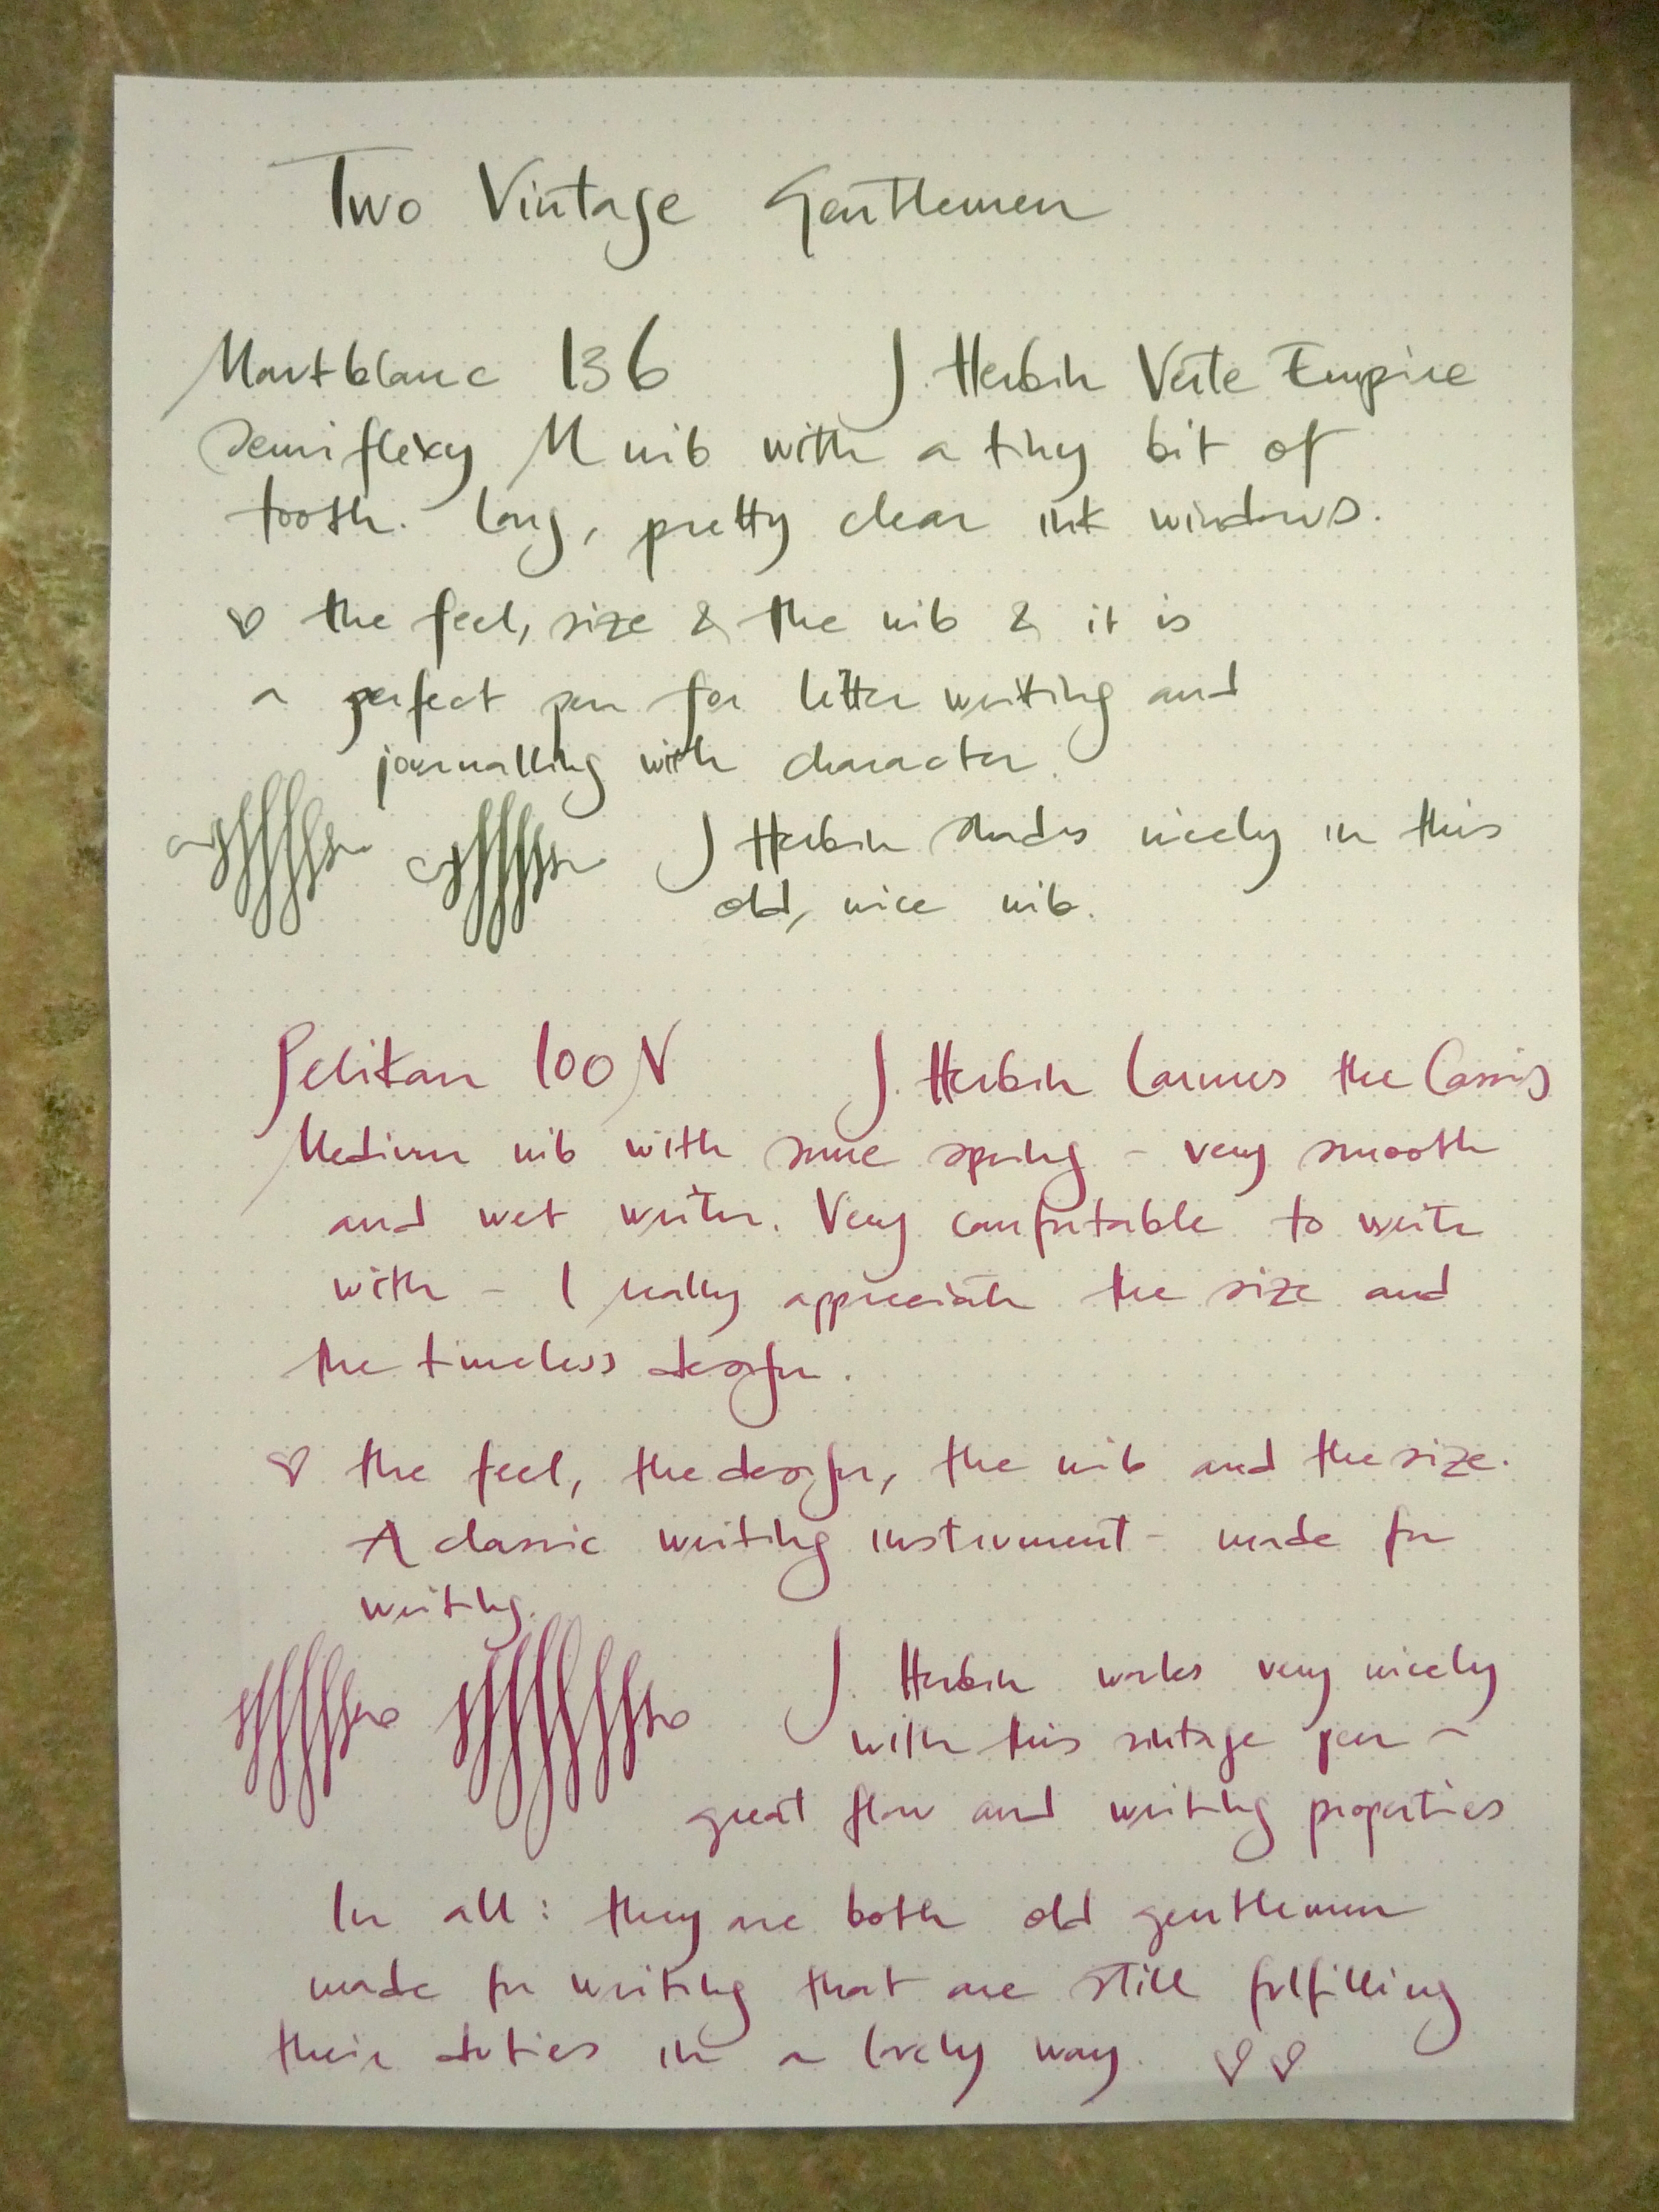 Two Vintage Gentlemen
Montblanc 136 J. Herbin Verte Empire
Semiflexy M nib with a tiny bit of
tooth. Long, pretty clear ink windows.
♡ the feel, size & the nib & it is
a perfect pen for letter writing and
journalling with character.
J Herbin shades nicely in this
old, nice nib.
Pelikan 100N J. Herbin Larmes the Cassis
Medium nib with some spring - very smooth
and wet writer. Very comfortable to write
with - I really appreciate the size and
the timeless design.
♡ the feel, the design, the nib and the size.
A classic writing instrument - made for
writing.
J. Herbin works very nicely
with this vintage pen -
great flow and writing properties
In all: they are both old gentlemen
made for writing that are still fulfilling
their duties in a lovely way. ♡♡